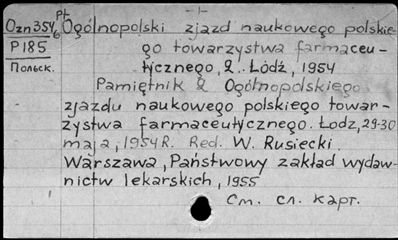 - 1 -
Pł.
Озп354/6 Ogólnopolski zjazd naukowego polskie-
P185 go towarzystwa farmaceu-
Польск. tycznego, 2. Łódź, 1954
Pamiętnik 2 Ogólnopolskiego
zjazdu naukowego polskiego towar-
zystwa farmaceutycznego. Łodz, 29-30
maja, 1954 R. Red. W. Rusiecki.
Warszawa, Państwowy zakład wydaw-
nictw lekarskich, 1955
См. сл. карт.